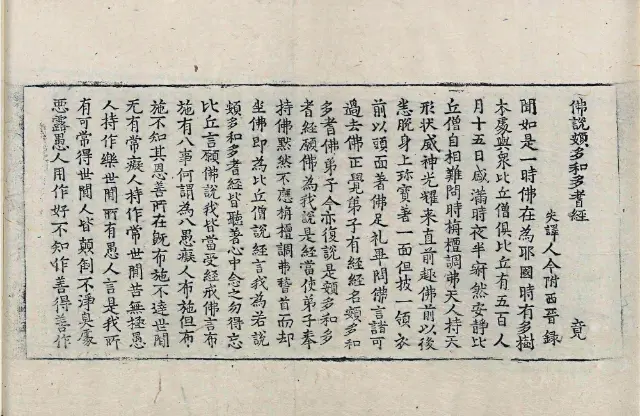 佛說頞多和多耆經
失譯人今附西晉錄 竟
聞如是一時佛在為耶國時有多樹
木處與衆比丘僧俱比丘有五百人
月十五日盛滿時夜半寂然安靜比
丘僧自相難問時栴檀調弗天人持天
形狀威神光耀來直前趣佛前以後
悉脫身上珎寶著一面但披一領衣
前以頭面著佛足礼畢問佛言諸可
過去佛正覺弟子有經經名頞多和
多耆佛弟子今亦復說是頞多和多
者經願佛為我說是經當使弟子奉
持佛默然不應栴檀調弗稽首而却
坐佛即為比丘僧說經言我為若說
頞多和多耆經皆聽著心中念之勿得忘
比丘言願佛說我皆當受經戒佛言布
施有八事何謂為八愚癡人布施但布
施不知其恩善所在既布施不逹世間
无有常癡人持作常世間苦無極愚
人持作樂世間所有愚人言是我所
有可常得世間人皆顛倒不淨臭處
惡露愚人用作好不知作善得善作